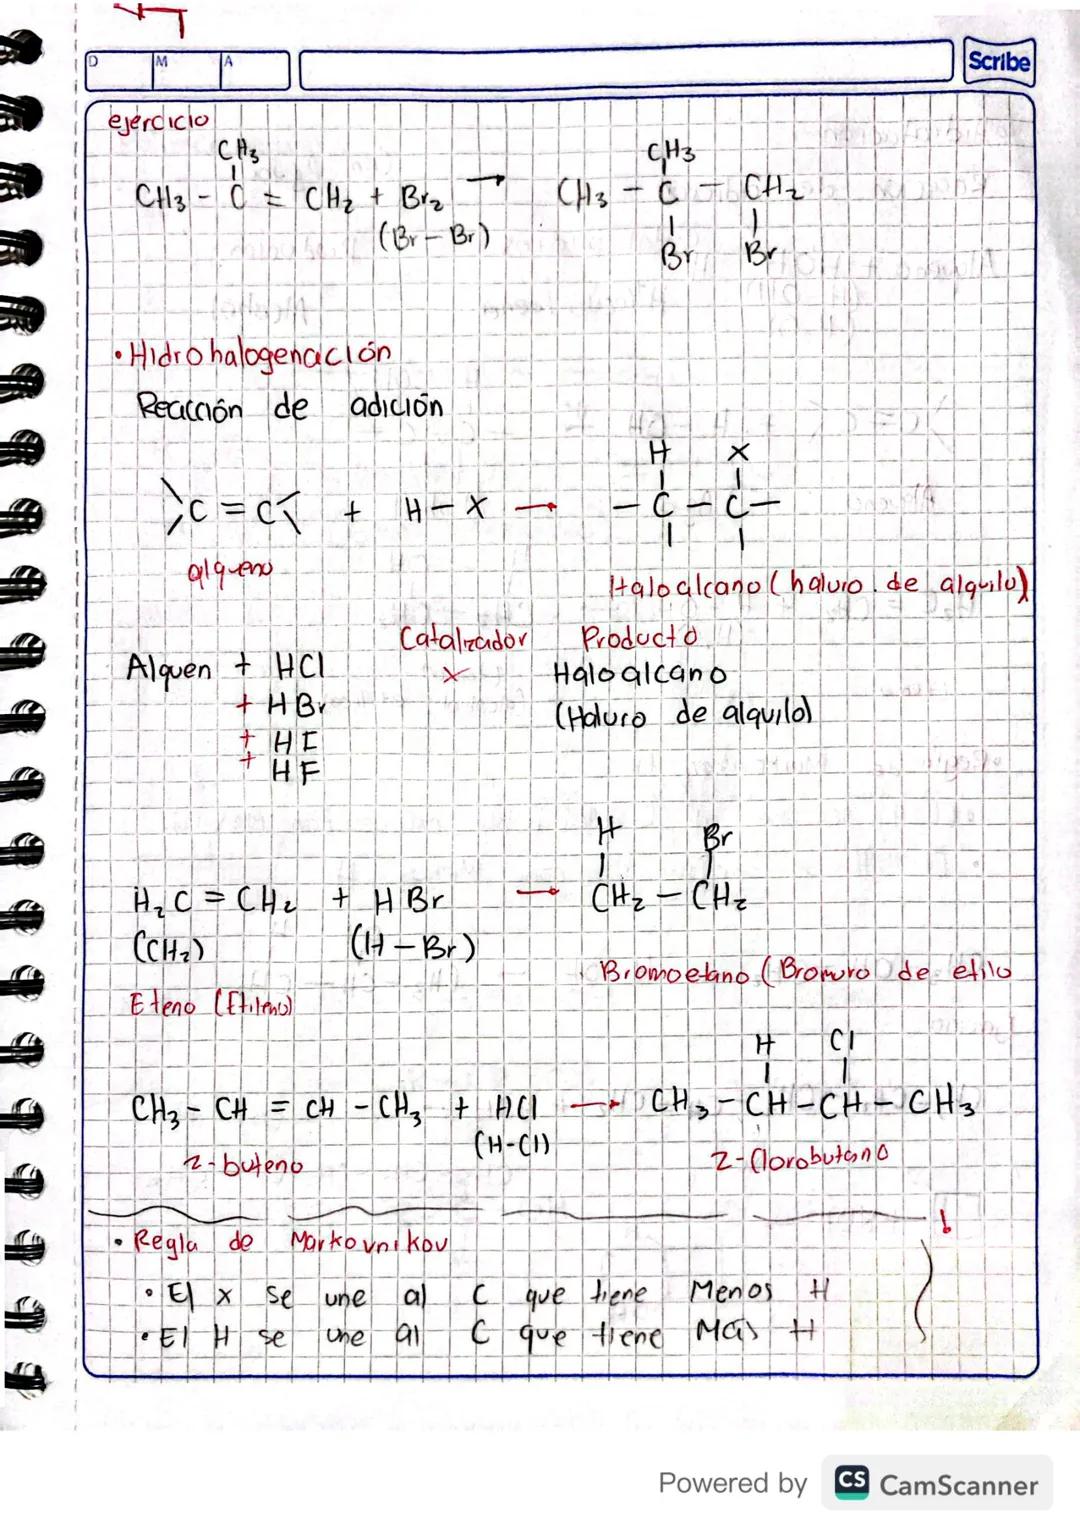 D M A
Scribe
ejercicio
CH3
CH3 - C = CH2 + Br2 → CH3 - C - CH2
(Br - Br)
CH3
Br Br
• Hidrohalogenación
Reacción de adición
H X
C = C + H - X → - C - C -
alqueno
Haloalcano (haluro de alquilo)
Catalizador Producto
Alquen + HCl x Haloalcano
+ HBr (Haluro de alquilo)
+ HI
+ HF
H Br
H2C = CH2 + HBr → CH2 - CH2
(CH2) (H - Br)
Bromoetano (Bromuro de etilo
Eteno (Etileno)
H Cl
CH3 - CH = CH - CH3 + HCl → CH3 - CH - CH - CH3
(H-Cl)
2-buteno 2-Clorobutano
!
• Regla de Markovnikov
• El x se une al C que tiene Menos H
• El H se une al C que tiene Más H
Powered by CS CamScanner